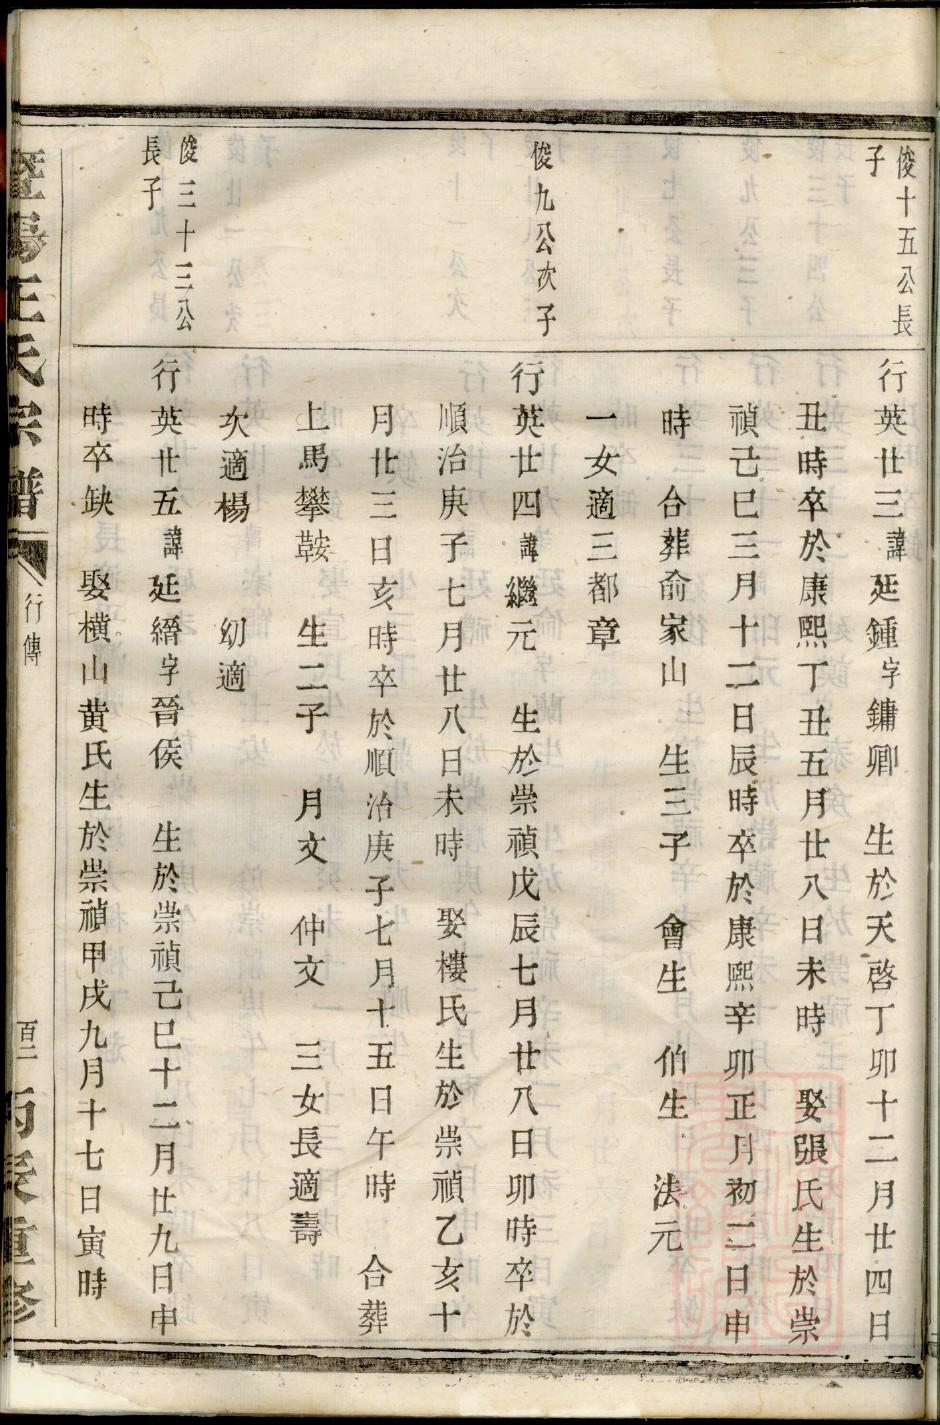 俊十五公長
子
行英廿三諱廷鍾字鏞卿　生於天啓丁卯十二月廿四日
丑時卒於康熙丁丑五月廿八日未時　娶張氏生於崇
禎己巳三月十二日辰時卒於康熙辛卯正月初二日申
時　合葬俞家山　生三子　會生　伯生　法元
一女適三都章
俊九公次子
行英廿四諱繼元　生於崇禎戊辰七月廿八日卯時卒於
順治庚子七月廿八日未時　娶樓氏生於崇禎乙亥十
月廿三日亥時卒於順治庚子七月十五日午時　合葬
上馬攀鞍　生二子　月文　仲文　三女長適壽
次適楊　幼適
俊三十三公
長子
行英廿五諱廷縉字晉侯　生於崇禎己巳十二月廿九日申
時卒缺　娶橫山黄氏生於崇禎甲戌九月十七日寅時
暨陽王氏宗譜　行傳　丙辰重修